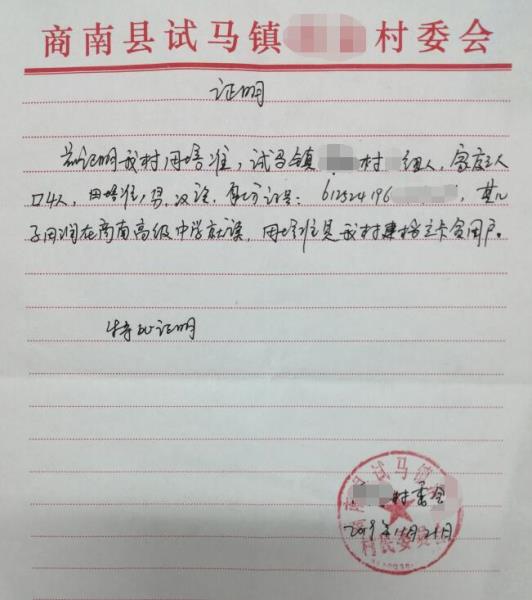 商南县试马镇 村委会
证明
兹证明我村田培准,试马镇 村 组人,家庭人
口4人,田培准,男,汉族,身份证号:61252419 6 ,其儿
子田润在商南高级中学就读,田培准是我村建档立卡贫困户。
特此证明
商南县试马镇
村委会
2019年11月21日
村民委员会